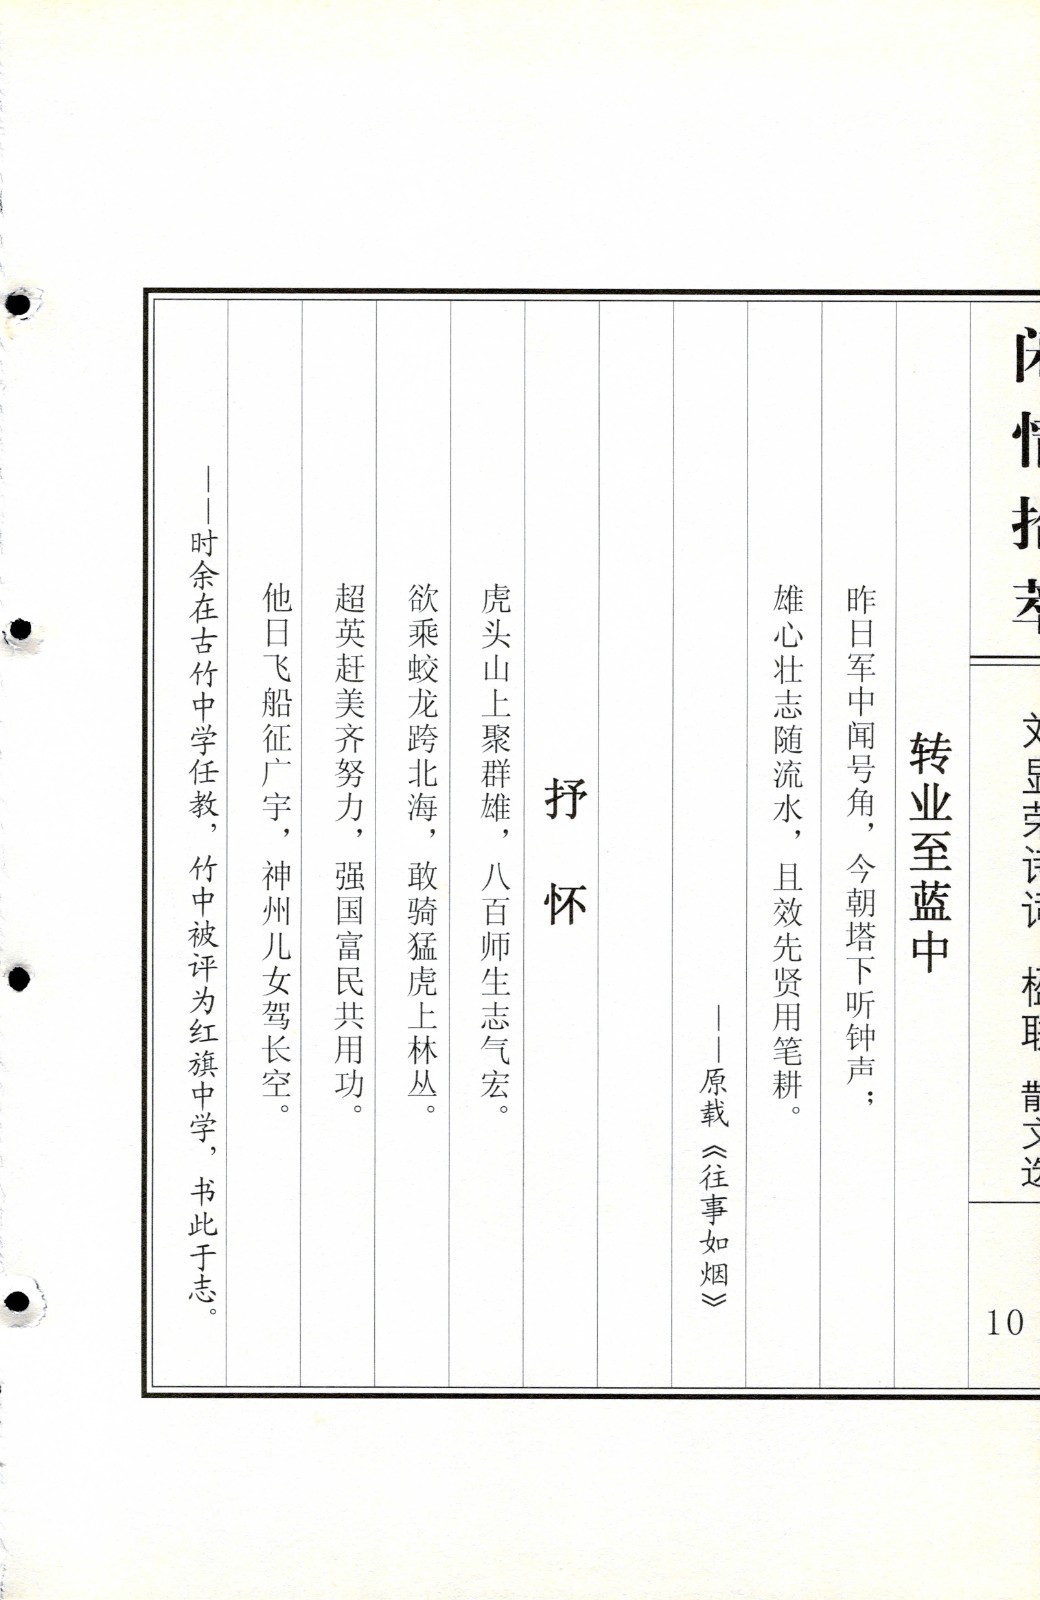 闲情拾萃
刘显荣诗词 楹联 散文选
10
转业至蓝中
昨日军中闻号角，今朝塔下听钟声；
雄心壮志随流水，且效先贤用笔耕。
——原载《往事如烟》
抒怀
虎头山上聚群雄，八百师生志气宏。
欲乘蛟龙跨北海，敢骑猛虎上林丛。
超英赶美齐努力，强国富民共用功。
他日飞船征广宇，神州儿女驾长空。
——时余在古竹中学任教，竹中被评为红旗中学，书此于志。